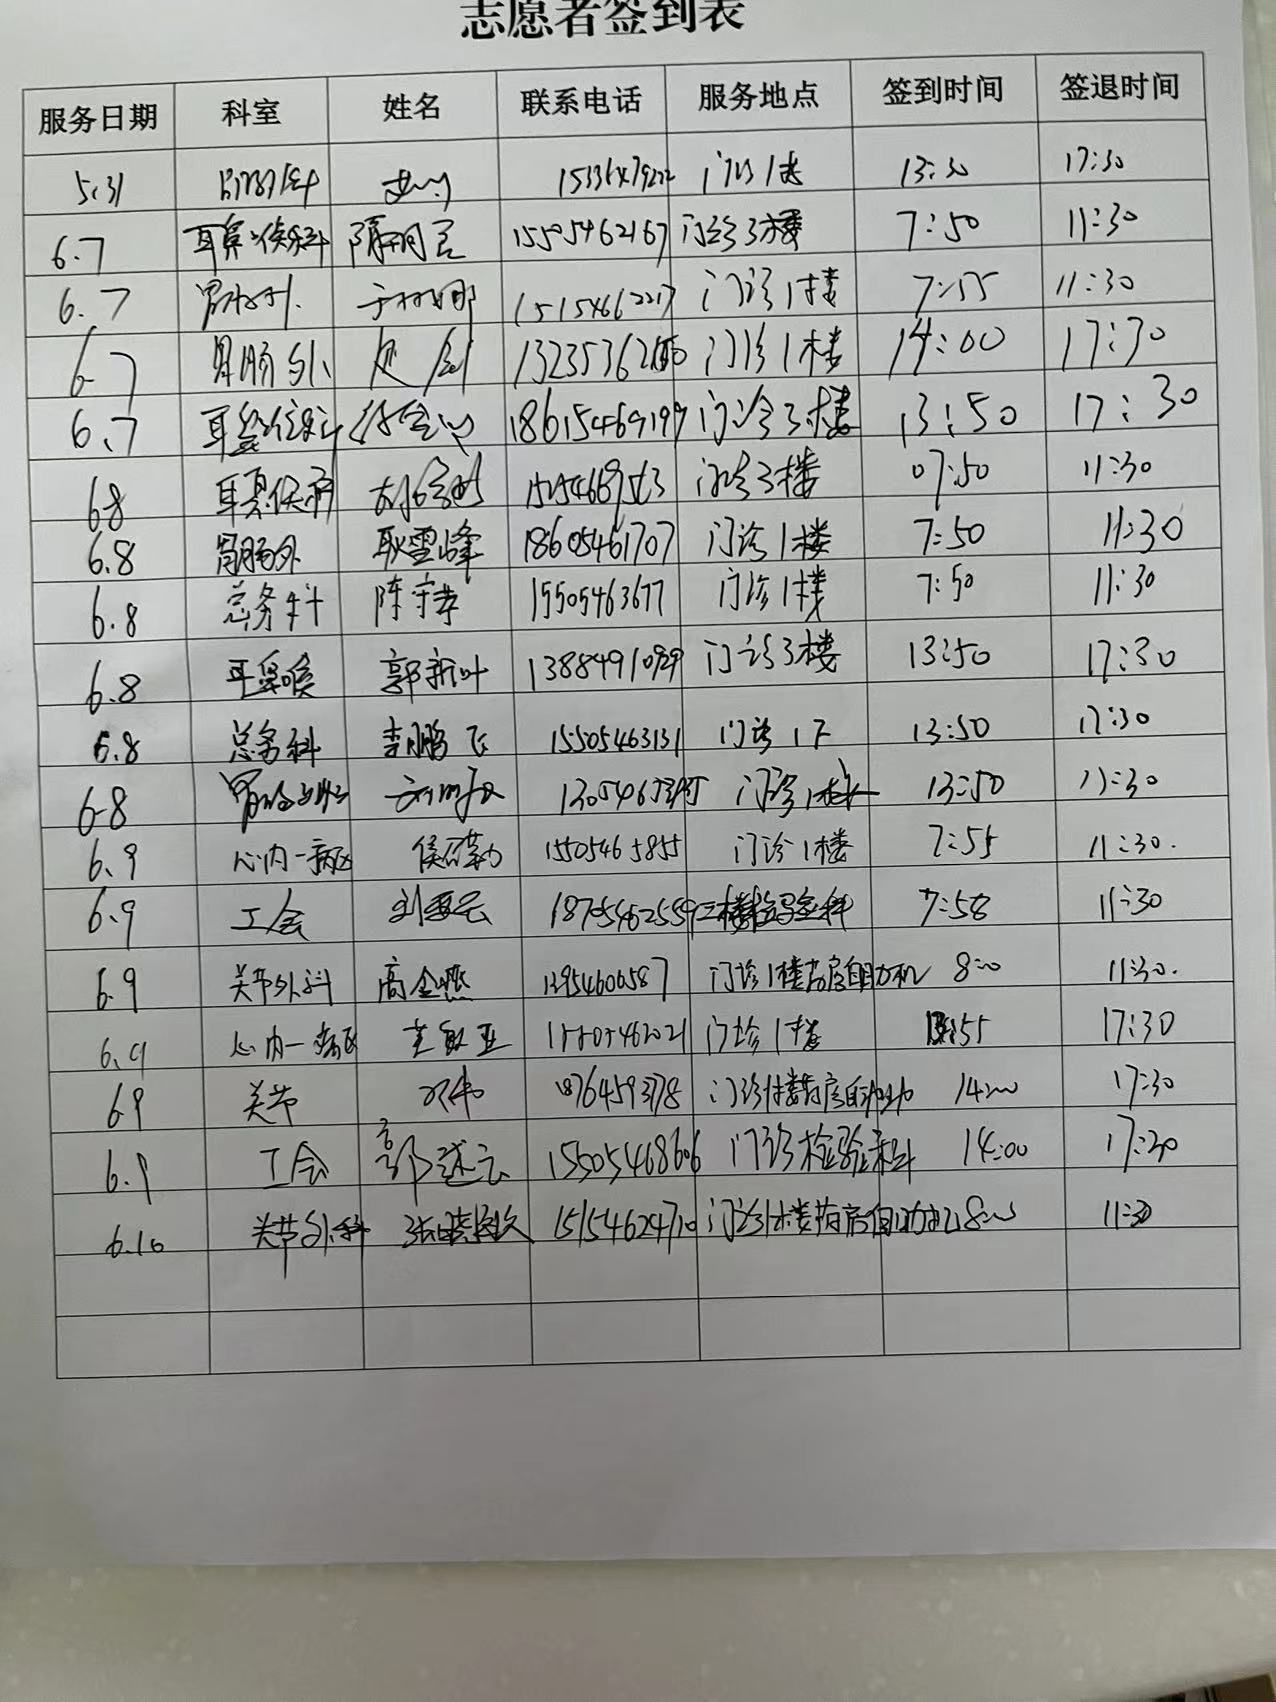 志愿者签到表
服务日期 科室 姓名 联系电话 服务地点 签到时间 签退时间
5.31 门诊1楼 13:30 17:30
6.7 耳鼻喉科 15505462167 门诊3楼 7:50 11:30
6.7 门诊1楼 7:55 11:30
6.7 胃肠外 门诊1楼 14:00 17:30
6.7 18615469197 门诊3楼 13:50 17:30
6.8 门诊3楼 07:50 11:30
6.8 胃肠外 耿雪峰 18605461707 门诊1楼 7:50 11:30
6.8 总务科 陈守孝 15505463677 门诊1楼 7:50 11:30
6.8 耳鼻喉 郭新叶 13884910929 门诊3楼 13:50 17:30
6.8 总务科 李鹏飞 15505463131 门诊1下 13:50 17:30
6.8 门诊1楼 13:50 17:30
6.9 心内一病区 15505465855 门诊1楼 7:55 11:30.
6.9 工会 18705462559 二楼检验科 7:58 11:30
6.9 关节外科 高金燕 门诊1楼药房自助机 8:00 11:30.
6.9 心内一病区 15505462021 门诊1楼 13:55 17:30
6.9 关节 邓伟 14:00 17:30
6.9 工会 郭述云 15505468606 门诊检验科 14:00 17:30
6.10 关节外科 15154624710 门诊1楼药房自助机 8:00 11:30